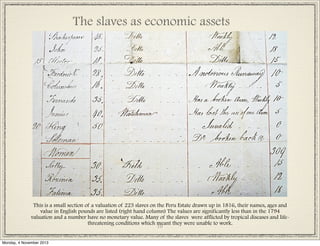 The slaves as economic assets
Shakespeare 45. Ditto Weakly 12
John 25. Ditto Able 18
15 Ditto Ditto 15
Frederick 28. Ditto A notorious Runaway 10
Columbus 18. Ditto Weakly 5
Fernando 35. Ditto Has a broken Arm, Weakly 10
Junius 40. Watchman Has lost the use of one Arm 5
20 King 50 Invalid 0
Soloman Do broken back 0
Women 309
Kitty 30. Field Able 15
Rosinia 35. Ditto Weakly 12
Fatima 35. Ditto Able 18
This is a small section of a valuation of 223 slaves on the Peru Estate drawn up in 1816, their names, ages and
value in English pounds are listed (right hand column) The values are significantly less than in the 1794
valuation and a number have no monetary value. Many of the slaves were afflicted by tropical diseases and life-
threatening conditions which meant they were unable to work.
Monday, 4 November 2013